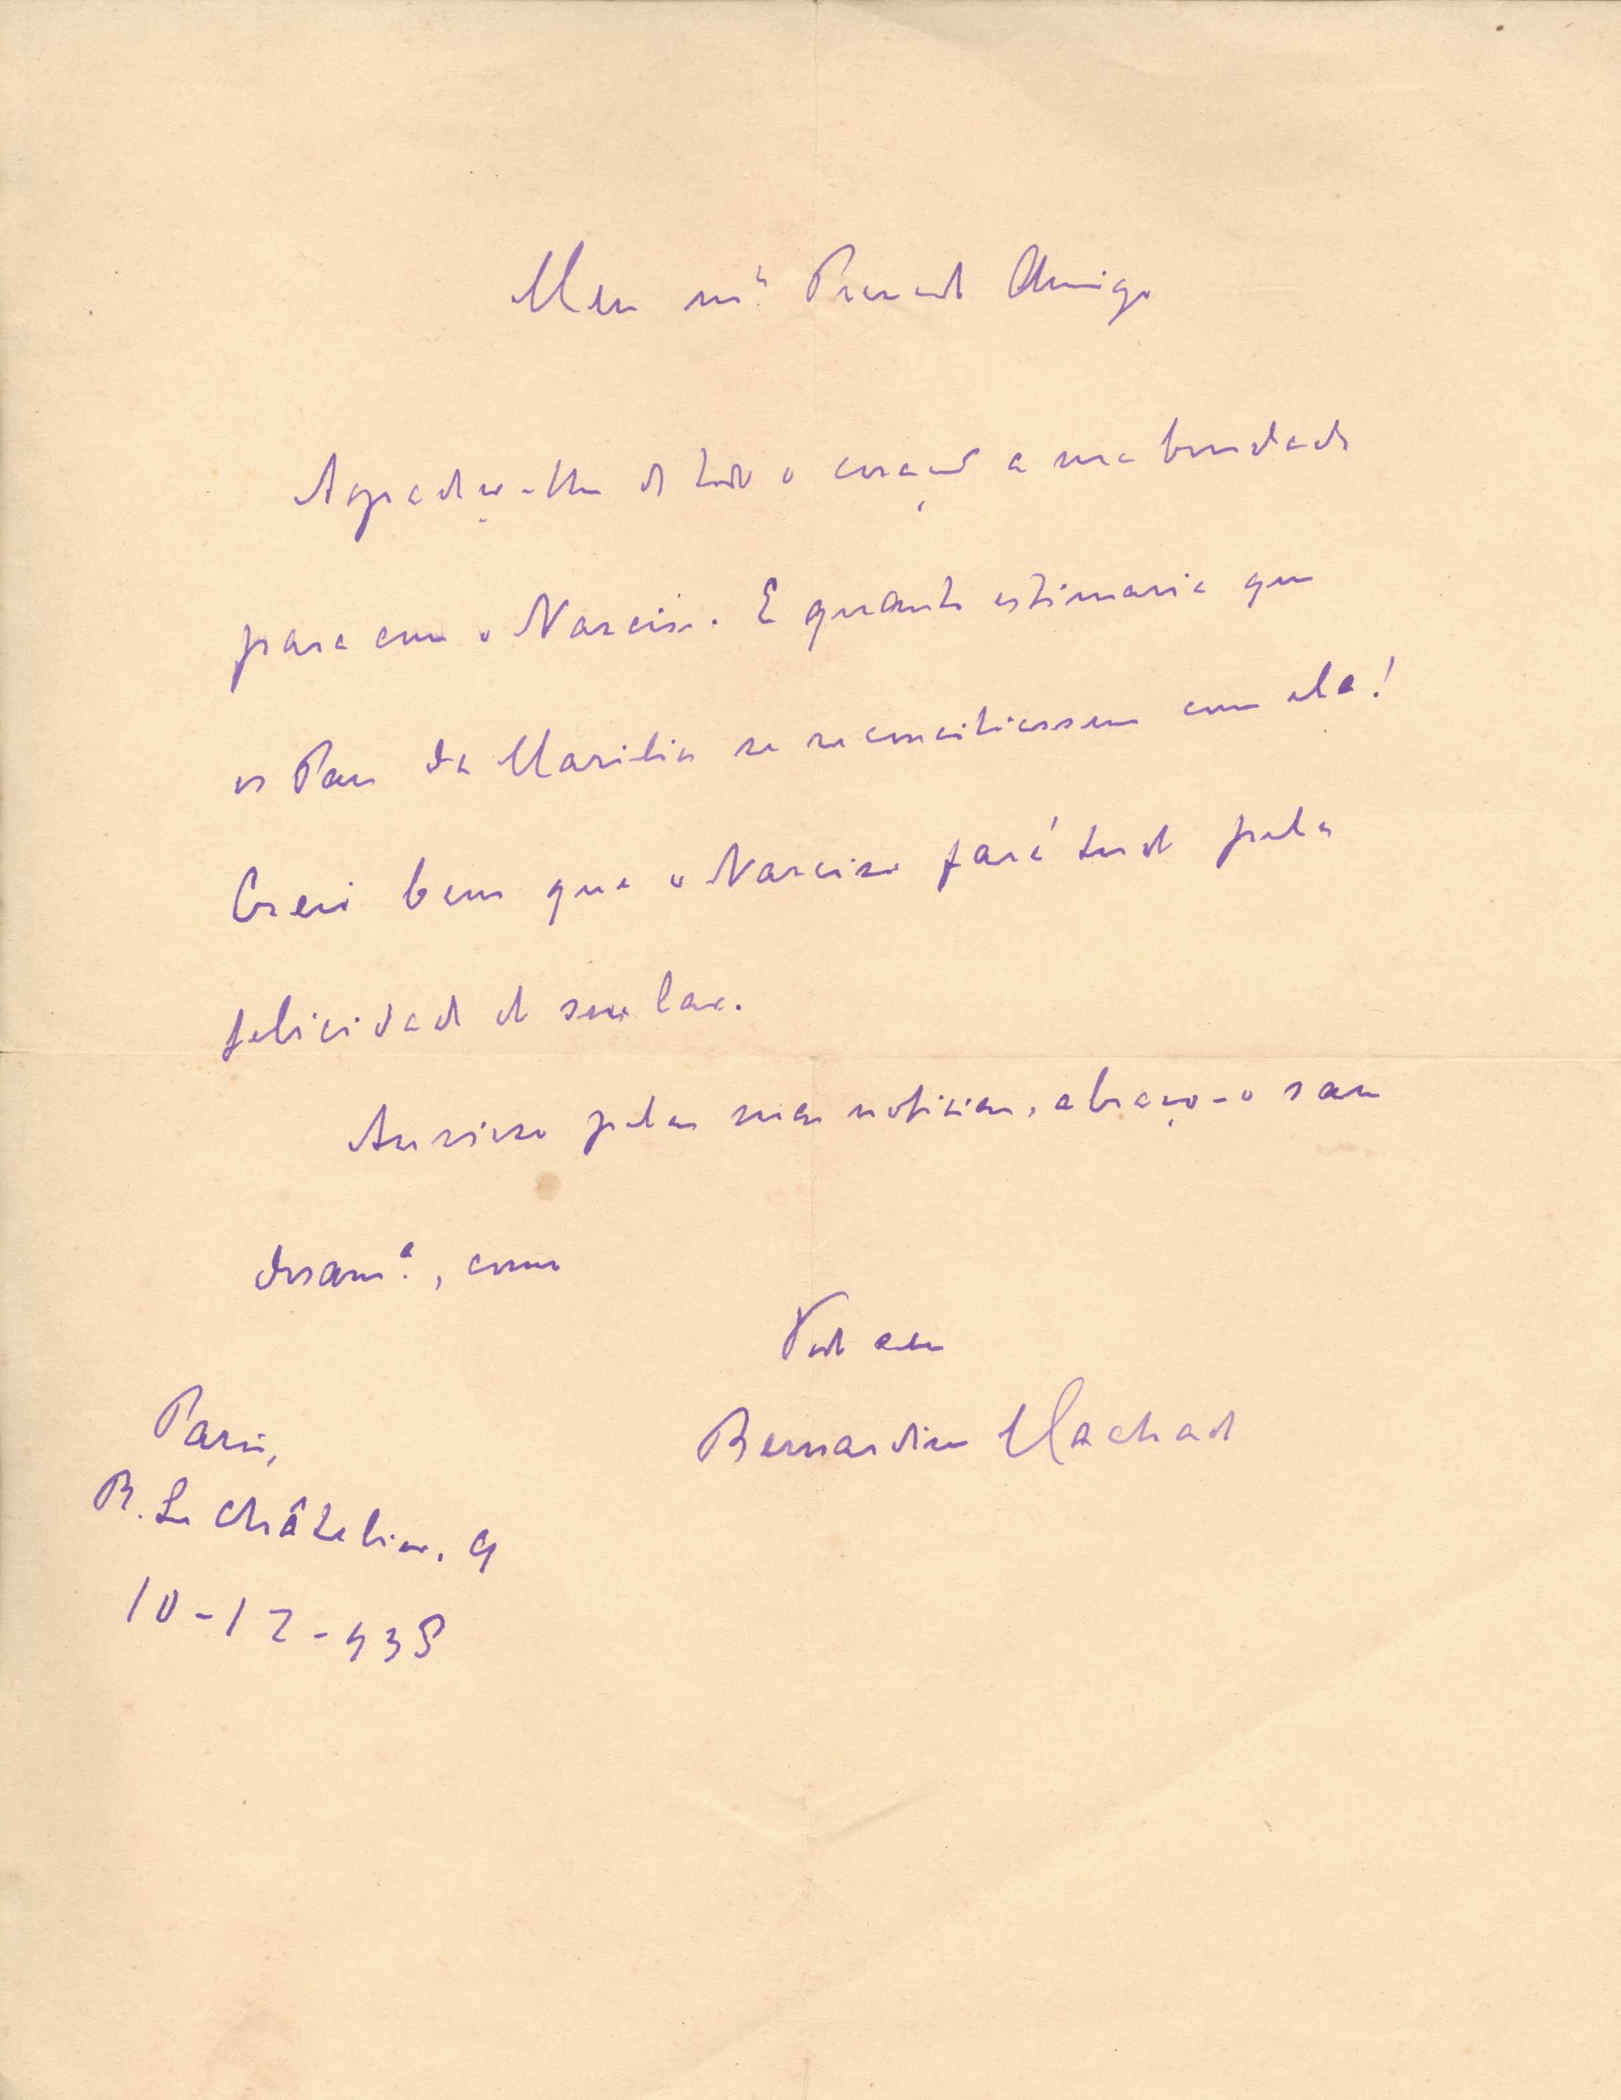 Meu mto Prezado Amigo
Agradeço-lhe de todo o coração a sua bondade
para com o Narciso. E quanto estimaria que
os Paes da Marilia se reconciliassem com ela!
Creio bem que o Narciso fará tudo pela
felicidade do seu lar.
Ancioso pelas suas noticias, abraço-o sau
dosamte, como
Todo seu
Bernardino Machado
Paris,
R. Le Châtelier, 9
10-12-935